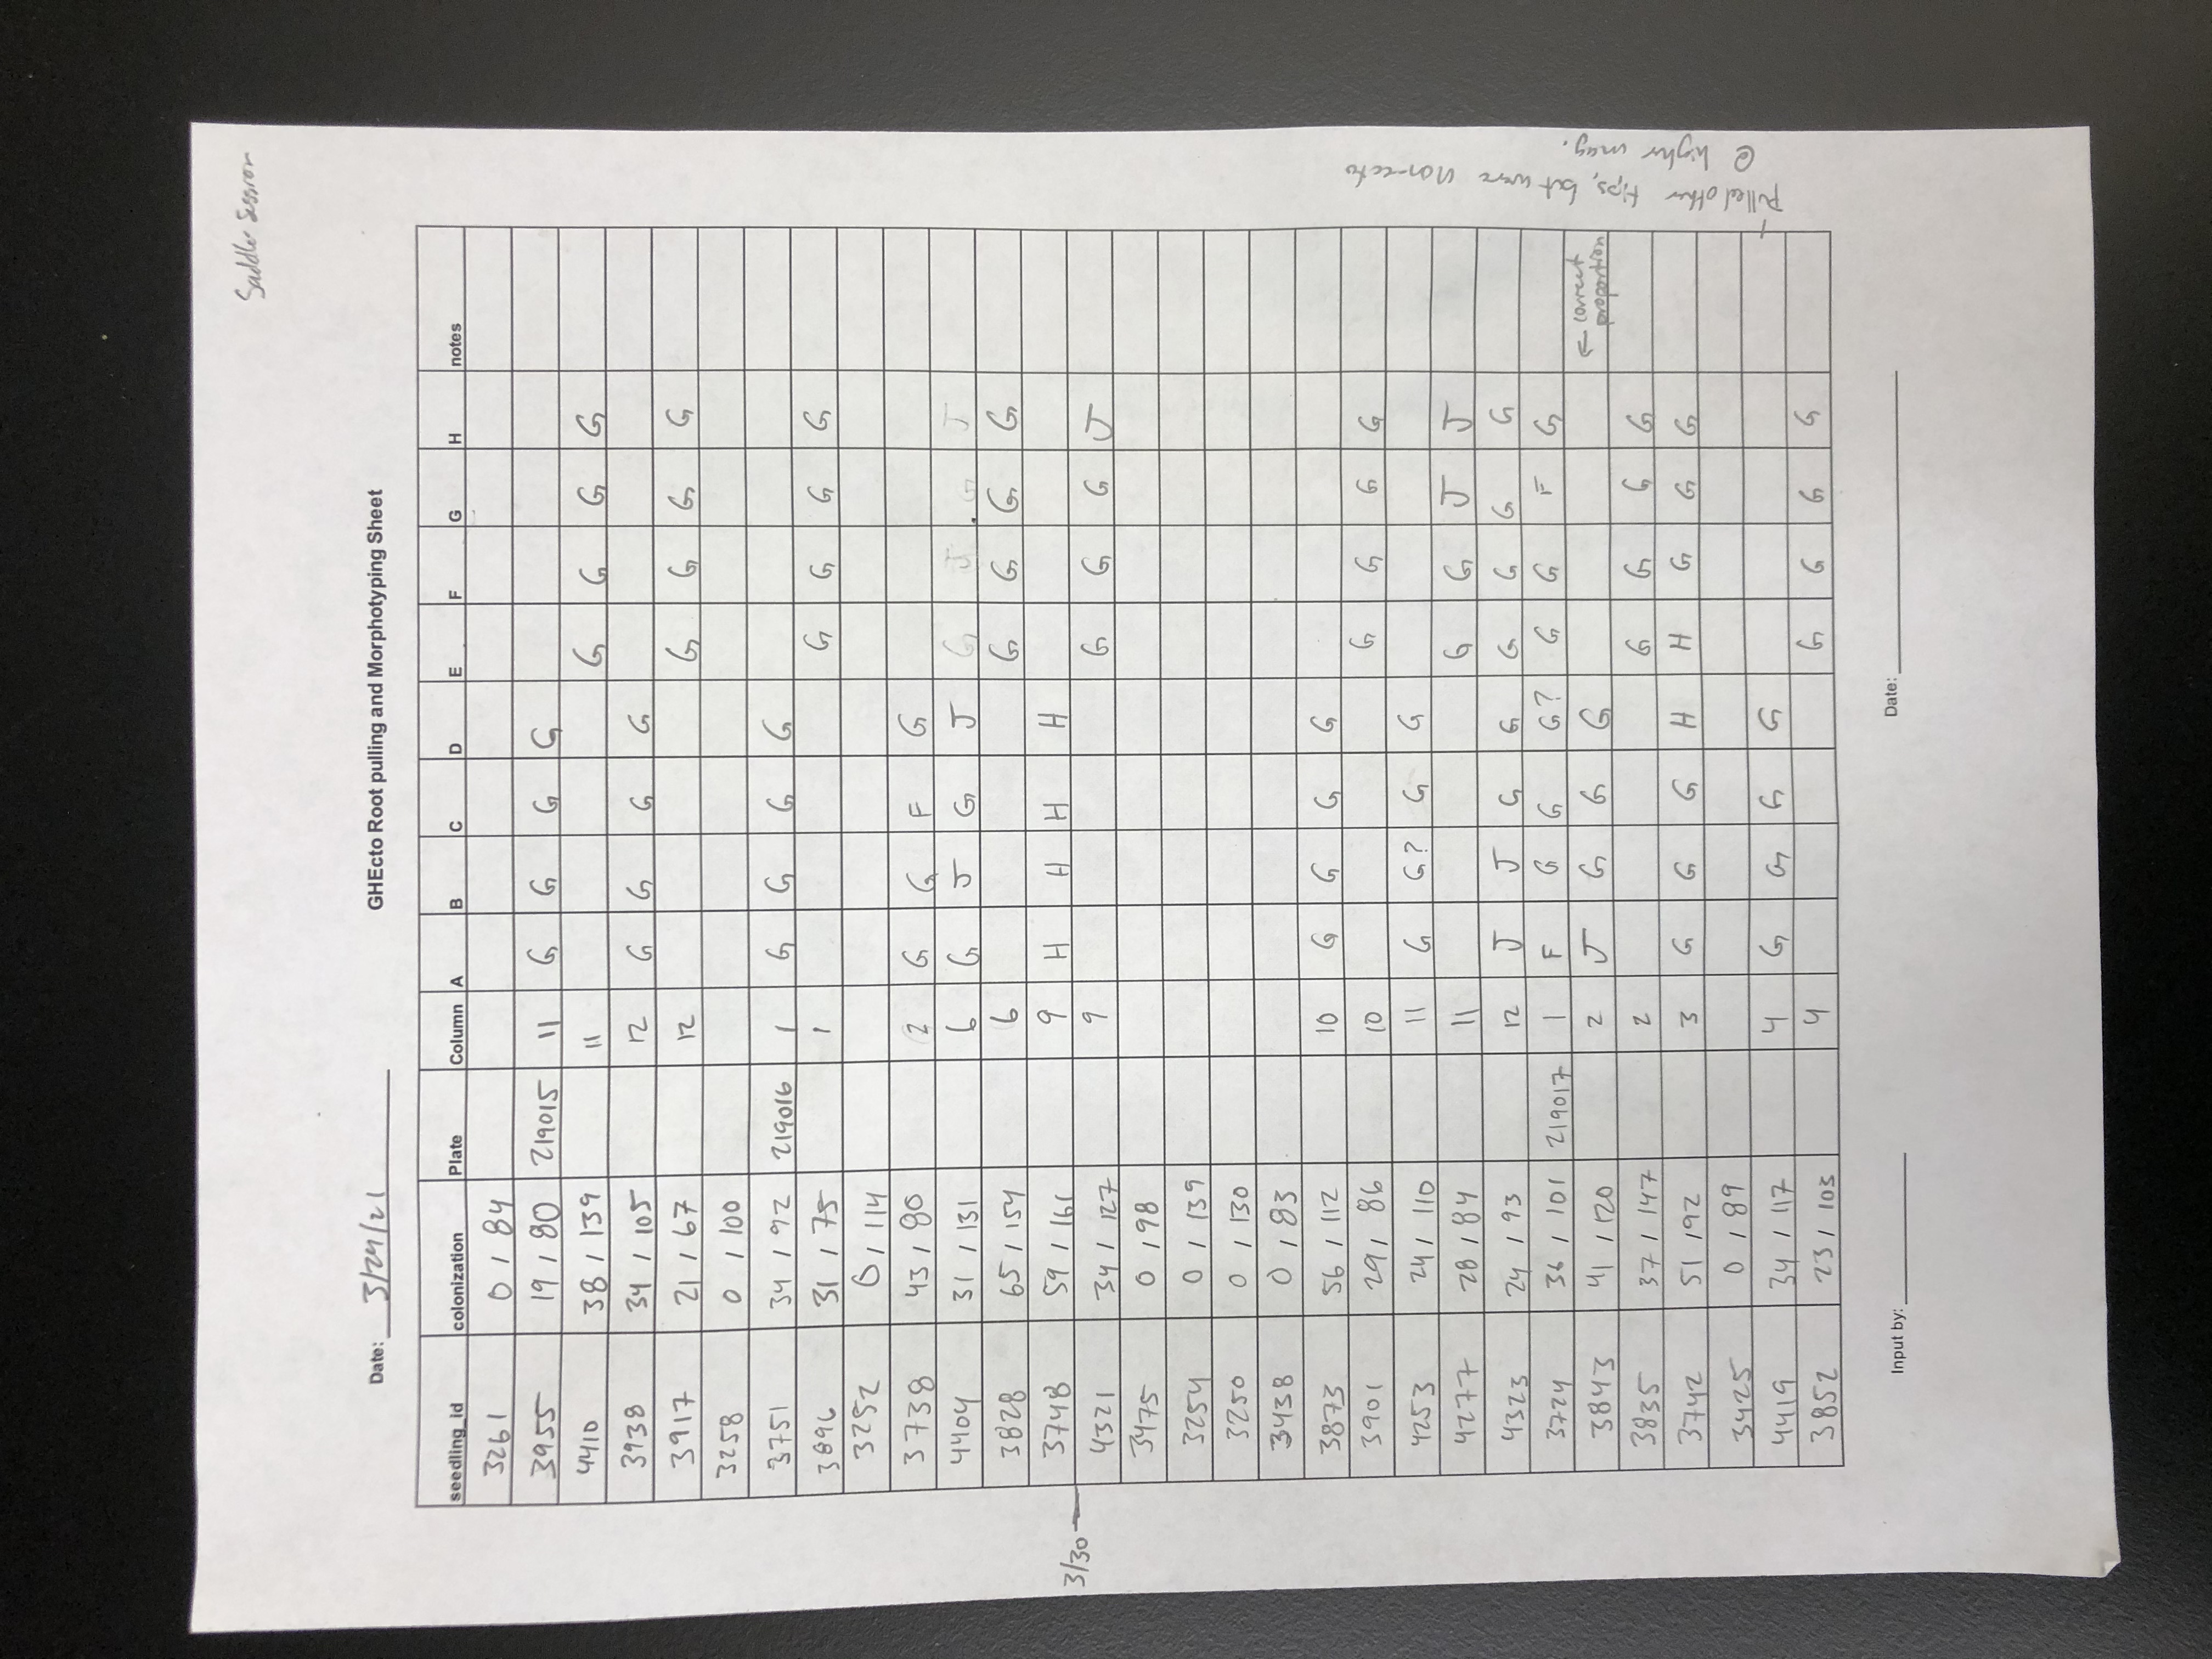 Saddler Session
Date: 3/29/21 GHEcto Root pulling and Morphotyping Sheet
seedling_id colonization Plate Column A B C D E F G H notes
3261 0 / 84
3955 19 / 80 219015 11 G G G G
4410 38 / 139 11 G G G G
3938 34 / 105 12 G G G G
3917 21 / 67 12 G G G G
3258 0 / 100
3751 34 / 92 219016 1 G G G G
3896 31 / 75 1 G G G G
3252 0 / 114
3738 43 / 80 2 G G F G
4404 31 / 131 6 G J G J G J G J
3828 65 / 154 6 G G G G
3748 59 / 161 9 H H H H
3/30
4321 34 / 127 9 G G G J
3475 0 / 98
3254 0 / 139
3250 0 / 130
3438 0 / 83
3873 56 / 112 10 G G G G
3901 29 / 86 10 G G G G
4253 24 / 110 11 G G? G G
4277 28 / 84 11 G G J J
4323 24 / 93 12 J J G G G G G G
3724 36 / 101 219017 1 F G G G? G G F G
3843 41 / 120 2 J G G G ← correct proportion
3835 37 / 147 2 G G G G
3742 51 / 92 3 G G G H H G G G
3425 0 / 89
4419 34 / 117 4 G G G G
3852 23 / 103 4 G G G G
Pulled other tips, but were non-ecto
@ higher mag.
Input by: Date: